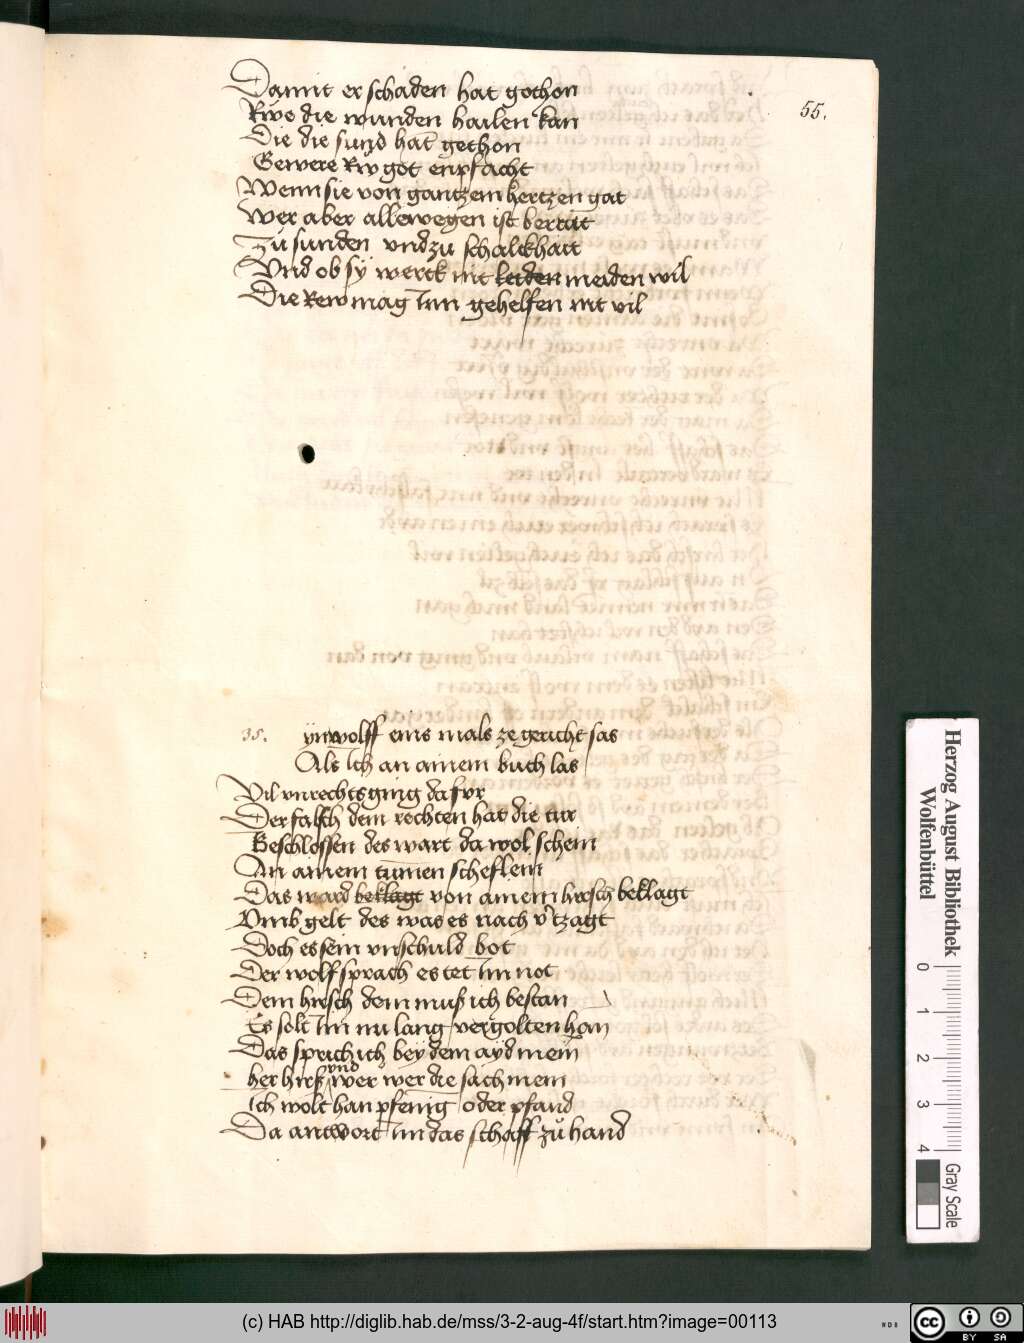 55.
Damit er schaden hat gethon
Rwe die wunden hailen kan
Die die sund hat gethon
Gewere Rw got enpfacht
Wenn sie von gantzem hertzen gat
Wer aber allewegen ist beratt
Zu sunden vnd zu schalckhait
Vnd ob sÿ werck nit leiden meiden wil
Die Rew mag Im gehelfen nit vil
35. ÿn wolff eins mals ze gericht sas
Als Ich an ainem buch las
Vil vnrechts ging da für
Der falsch dem rechten hat die tür
Beschlossen des wart da wol schein
An ainem tumen scheflein
Das ward beklagt von ainem hirsch beklagt
Vmb gelt des was es nach v'tzagt
Doch es sein vnschuld bot
Der wolf sprach es tet Im not
Dem hirsch dem muß ich bestan
Es solt Im nu lang vergolten hon
Das sprich ich beÿ dem aÿd mein
her hirß vnd wer wer die sach mein
Ich wolt han pfenig oder pfand
Da antwort Im das schaff zu hand
Herzog August Bibliothek
Wolfenbüttel
0 1 2 3 4
Gray Scale
(c) HAB http://diglib.hab.de/mss/3-2-aug-4f/start.htm?image=00113
WDB
cc BY SA